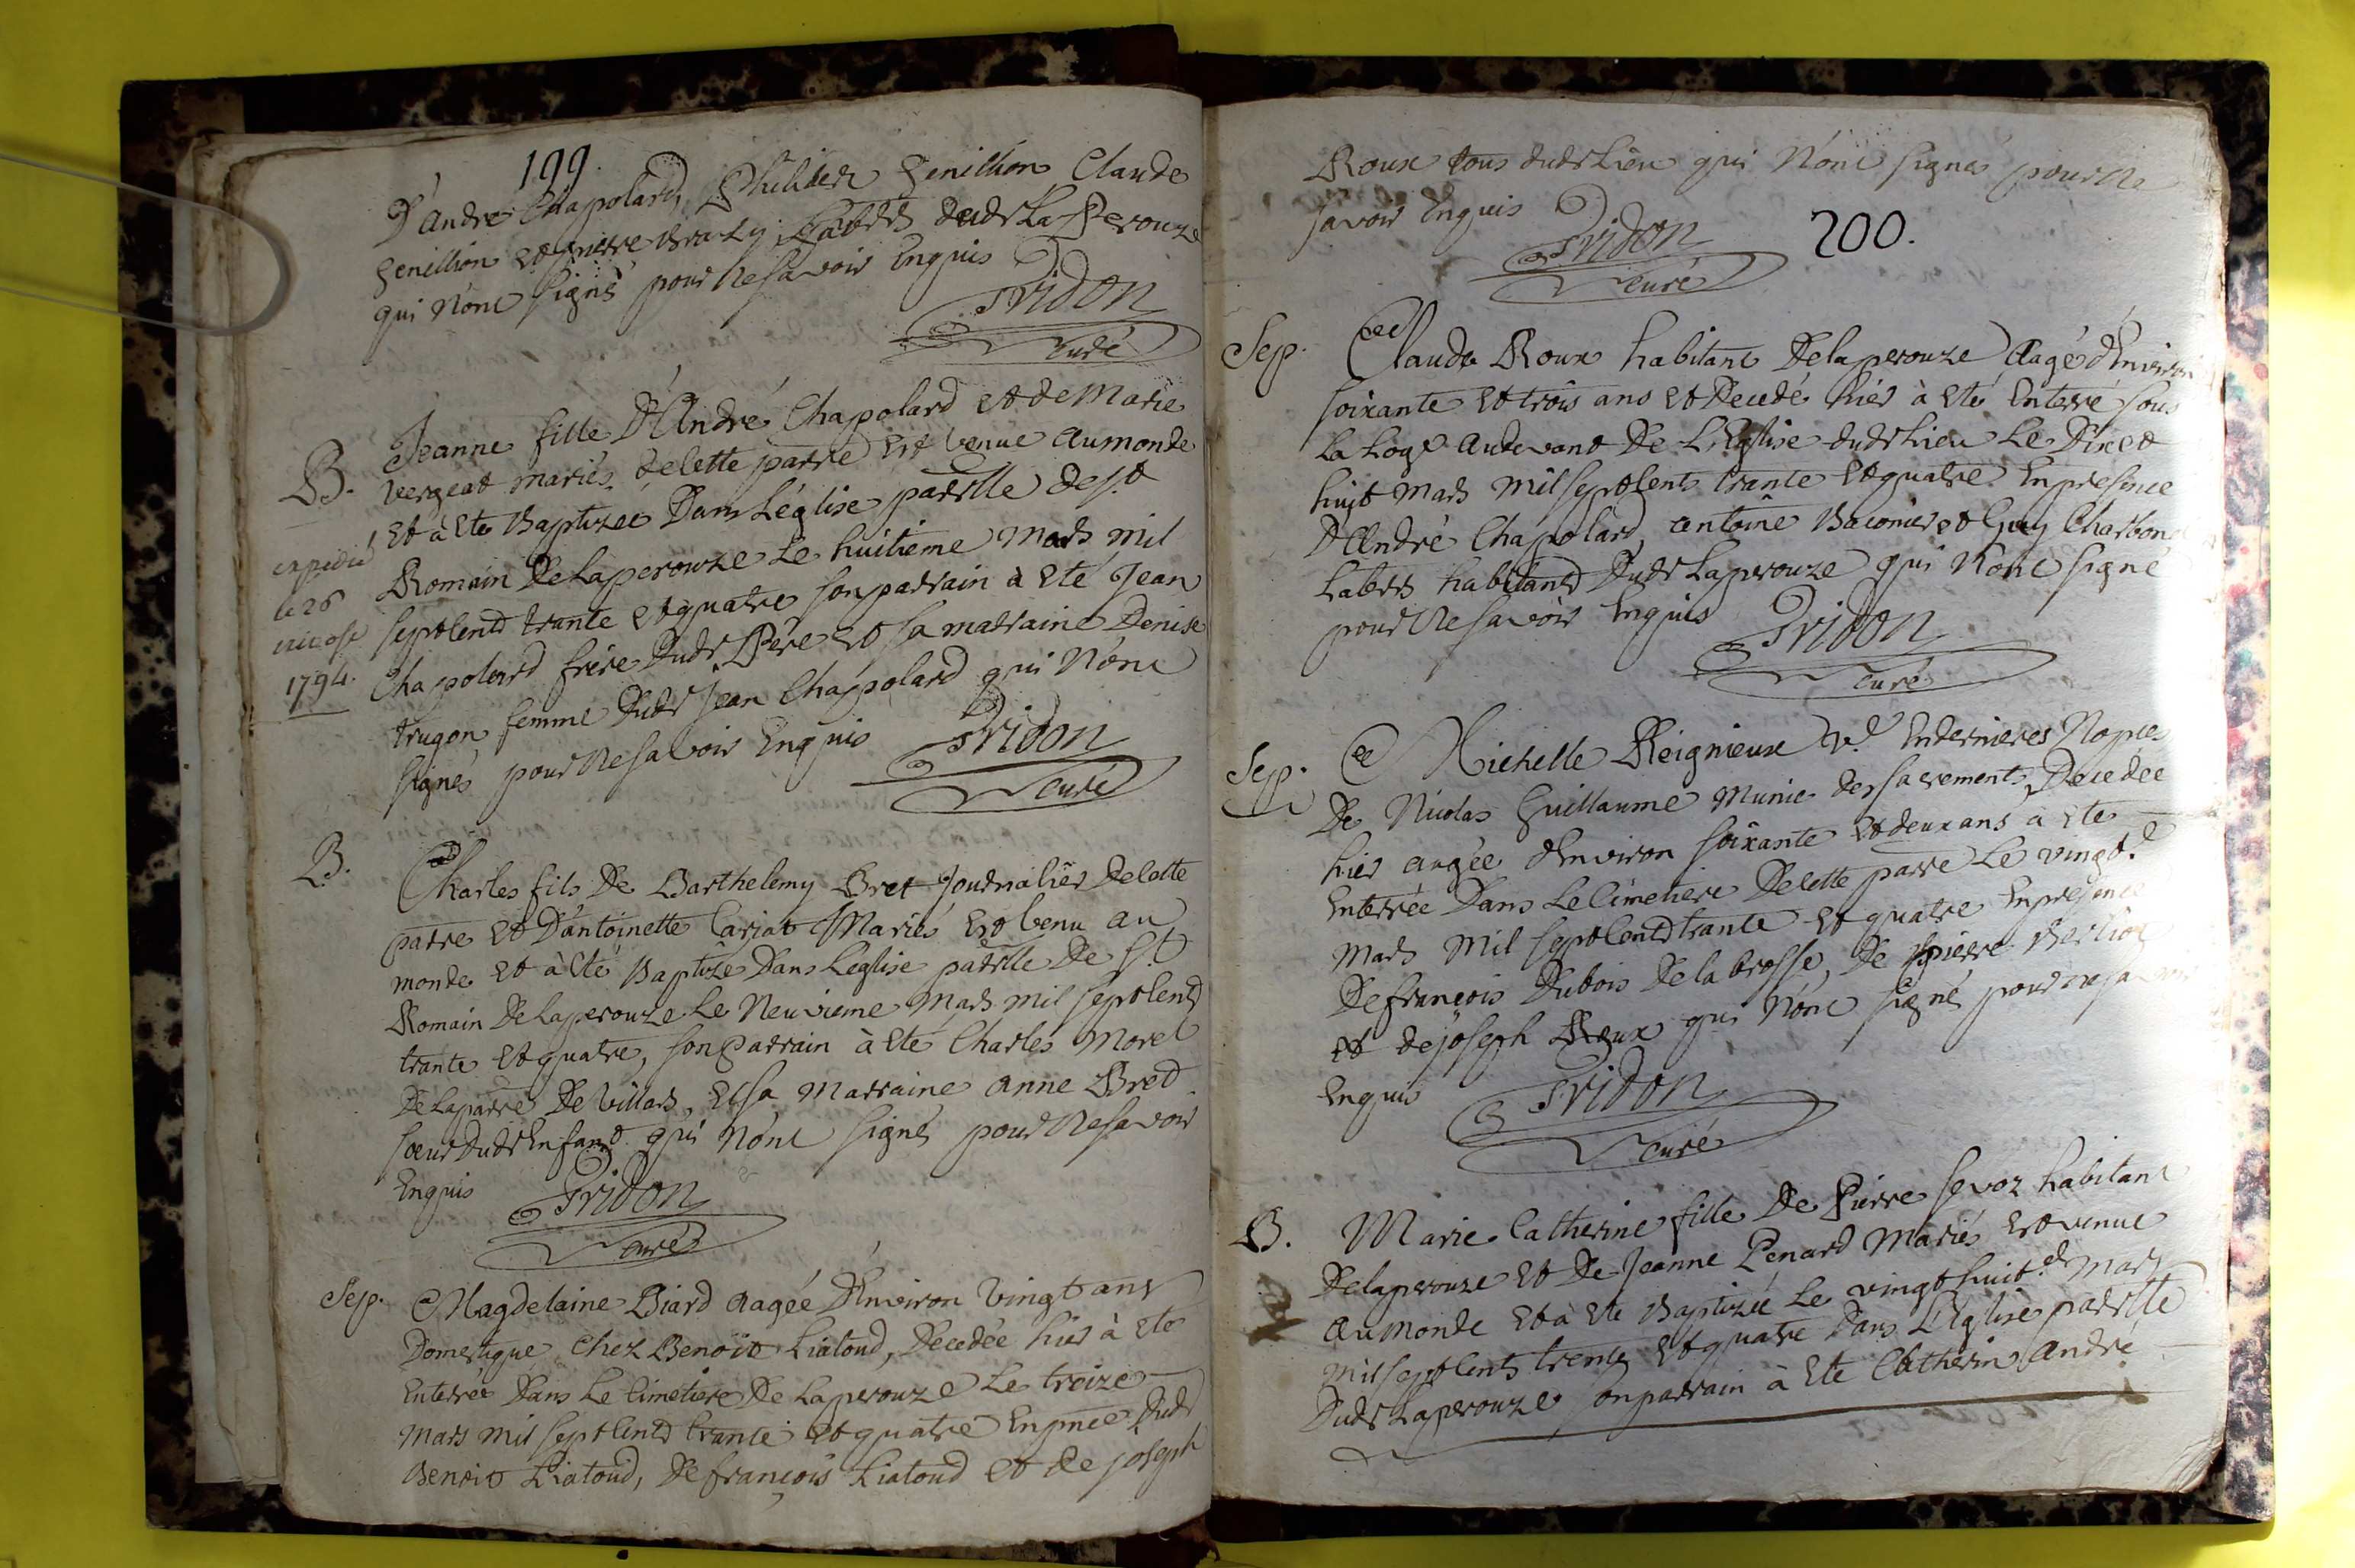 199.
D'andre Chapolard, Philibert Genillion Claude
Genillion et pierre Braly Labrs dudt La Perouze
qui n'ont signés pour ne savoir Enquis
Tridon
curé
B. Jeanne fille D'André Chapolard et de Marie
Vergeat mariés de cette parre est venue au monde
Et à Eté Baptizée Dans L'église parslle de st
Romain De Laperouze Le huitieme mars mil
sept Cents trante et quatre son parrain à Eté Jean
Chapolard frère Dudt Père et sa marraine Denise
trugon femme Dudt Jean Chapolard qui n'ont
signés pour ne savoir Enquis
Tridon
curé
expedié
le 26
nivose
1794.
B. Charles fils De Barthelemy Bret Journalier De cette
parre et D'antoinette Carjat Mariés Est venu au
monde et à Eté Baptizé Dans L'eglise parslle De st
Romain De Laperouze Le Neuvieme Mars mil sept Cents
trante et quatre, son Parrain à Eté Charles Morel
De La parre De Villars, Et sa Marraine anne Bret
sœur Dudt Enfant qui n'ont signés pour ne savoir
Enquis Tridon
curé
Sep. Magdelaine Biard aagée D'Environ vingt ans
Domestique Chez Benoit Liatoud, Decedée hier à Eté
Enterrée Dans Le Cimetiere De Laperouze Le treize
Mars mil sept Cents trante et quatre En pnce Dudt
Benoit Liatoud, De françois Liatoud et de joseph
Roux tous dudt Lieu qui n'ont signés pour ne
savoir Enquis
Tridon
curé
200.
Sep. Claude Roux habitant De laperouze aagé d'Environ
soixante et trois ans et Decedé hier à Eté Enterré sous
La Loge au devant De L'Eglise dudt Lieu Le Dix et
huit Mars mil sept Cents trante et quatre En presence
D'André Chapolard, antoine Baconier et Guy Charbon
Labrs habitants Dudt Laperouze qui n'ont signé
pour ne savoir Enquis
Tridon
curé
Sep. Michelle Reignieux Ve En dernieres Nopces
De Nicolas Guillaume Munie des sacrements, Decedée
hier aagée d'Environ soixante et deux ans à Eté
Enterrée Dans Le Cimetiere De cette parre Le vingt e
Mars mil sept Cents trante et quatre En presence
De françois Dubois De la brosse, De pierre Berliot
et de joseph Roux qui n'ont signés pour ne savoir
Enquis
Tridon
curé
B. Marie Catherine fille De Pierre Sevoz habitant
De laperouze et De Jeanne Penard Mariés Est venue
au monde et à Eté Baptizée Le vingt huit e Mars
mil sept Cents trente et quatre Dans L'Eglise parslle
Dudt Laperouze son parrain à Eté Catherin André